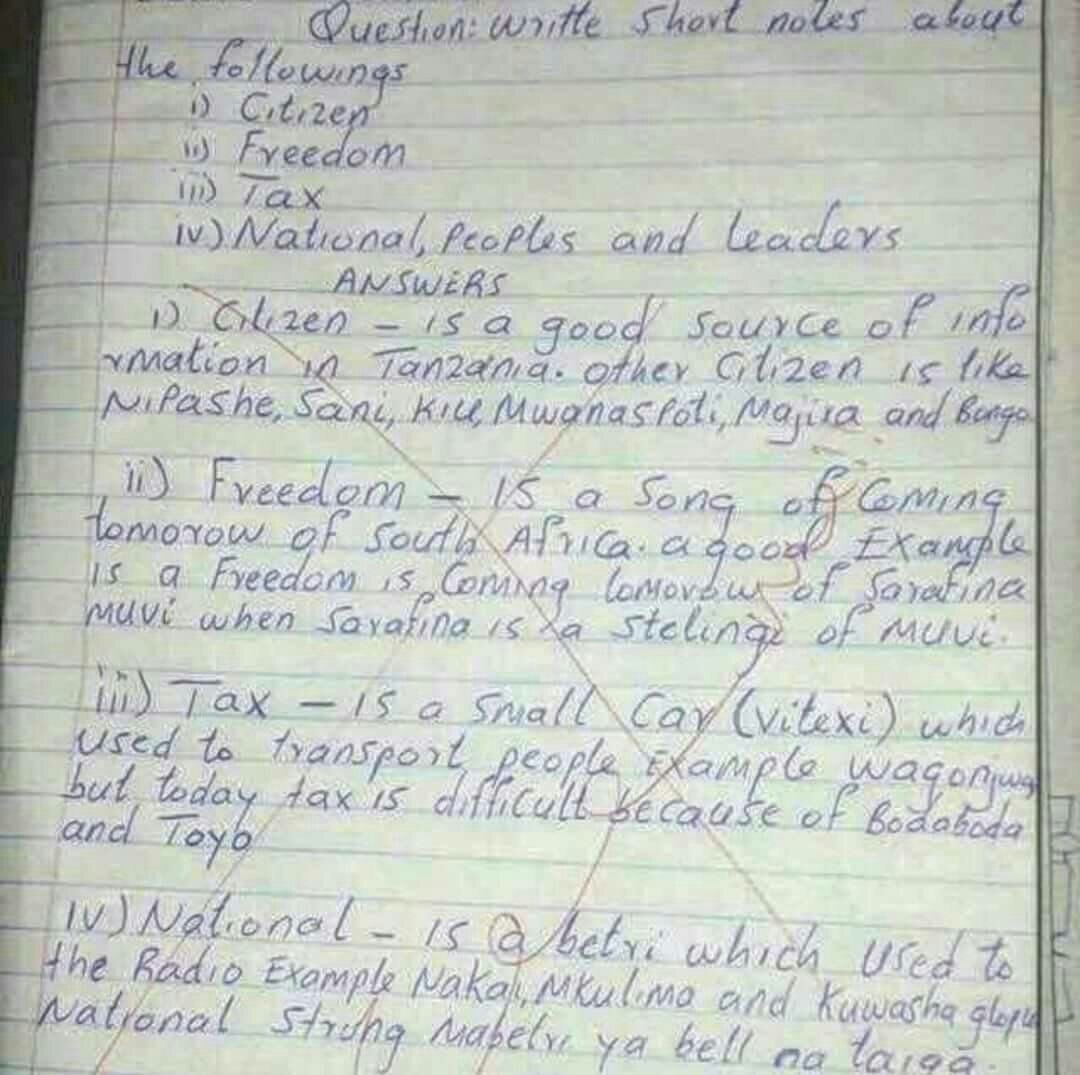 Question: writte short notes about
the followings
i) Citizen
ii) Freedom
iii) Tax
iv) National, Peoples and leaders
ANSWERS
i) Citizen - is a good source of info
rmation in Tanzania. other Citizen is like
Nipashe, Sani, Kiu, Mwanaspoti, Majira and Bunga
ii) Freedom - is a song of Coming
tomorow of South Africa. a good Example
is a Freedom is Coming tomorow of Sarafina
muvi when Sarafina is a stelingi of muvi.
iii) Tax - is a small Car (vitexi) which
used to transport people Example wagonjwa
but today tax is difficult because of Bodaboda
and Toyo
iv) National - is a betri which used to
the Radio Example Nakai, Mkulima and Kuwasha glopu
National strong Mabetri ya bell na taiga.